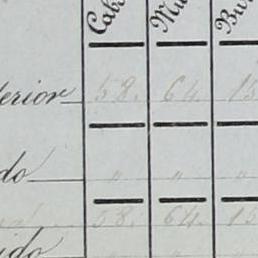 Cab Mu Bu
erior 58. 64 15
do " " "
58. 64. 15
ido